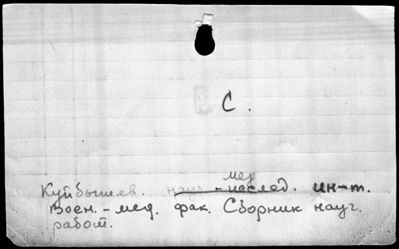 С.
мед
Куйбышев. науч.-исслед. ин-т.
Воен.-мед. фак. Сборник науч.
работ.